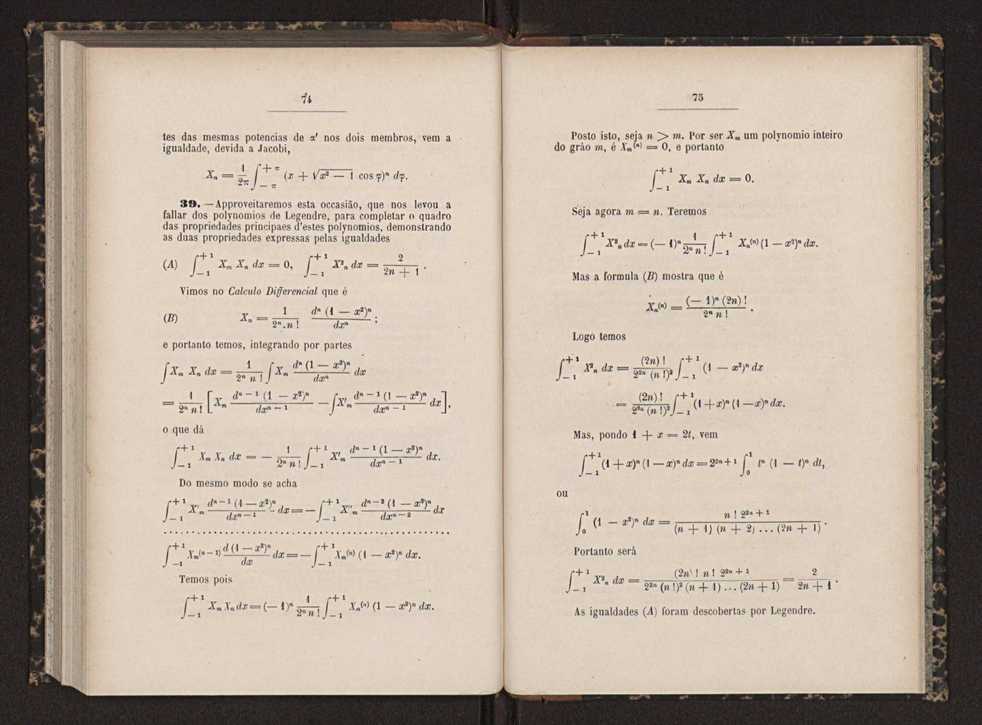 74
tes das mesmas potencias de α' nos dois membros, vem a
igualdade, devida a Jacobi,
Xₙ = 1/2π ∫_{−π}^{+π} (x + √(x² − 1) cos φ)ⁿ dφ.
39. — Approveitaremos esta occasião, que nos levou a
fallar dos polynomios de Legendre, para completar o quadro
das propriedades principaes d'estes polynomios, demonstrando
as duas propriedades expressas pelas igualdades
(A) ∫_{−1}^{+1} Xₘ Xₙ dx = 0, ∫_{−1}^{+1} X²ₙ dx = 2/(2n + 1).
Vimos no Calculo Differencial que é
(B) Xₙ = 1/(2ⁿ.n!) dⁿ(1 − x²)ⁿ/dxⁿ;
e portanto temos, integrando por partes
∫Xₘ Xₙ dx = 1/(2ⁿ n!) ∫Xₘ dⁿ(1 − x²)ⁿ/dxⁿ dx
= 1/(2ⁿ n!) [Xₘ dⁿ⁻¹(1 − x²)ⁿ/dxⁿ⁻¹ − ∫X'ₘ dⁿ⁻¹(1 − x²)ⁿ/dxⁿ⁻¹ dx],
o que dá
∫_{−1}^{+1} Xₘ Xₙ dx = − 1/(2ⁿ n!) ∫_{−1}^{+1} X'ₘ dⁿ⁻¹(1 − x²)ⁿ/dxⁿ⁻¹ dx.
Do mesmo modo se acha
∫_{−1}^{+1} X'ₘ dⁿ⁻¹(1 − x²)ⁿ/dxⁿ⁻¹ dx = − ∫_{−1}^{+1} X''ₘ dⁿ⁻²(1 − x²)ⁿ/dxⁿ⁻² dx
. . . . . . . . . . . . . . . . . . . . . . . . . . . . . .
∫_{−1}^{+1} Xₘ⁽ⁿ⁻¹⁾ d(1 − x²)ⁿ/dx dx = − ∫_{−1}^{+1} Xₘ⁽ⁿ⁾ (1 − x²)ⁿ dx.
Temos pois
∫_{−1}^{+1} Xₘ Xₙ dx = (− 1)ⁿ 1/(2ⁿ n!) ∫_{−1}^{+1} Xₘ⁽ⁿ⁾ (1 − x²)ⁿ dx.
75
Posto isto, seja n > m. Por ser Xₘ um polynomio inteiro
do gráo m, é Xₘ⁽ⁿ⁾ = 0, e portanto
∫_{−1}^{+1} Xₘ Xₙ dx = 0.
Seja agora m = n. Teremos
∫_{−1}^{+1} X²ₙ dx = (− 1)ⁿ 1/(2ⁿ n!) ∫_{−1}^{+1} Xₙ⁽ⁿ⁾ (1 − x²)ⁿ dx.
Mas a formula (B) mostra que é
Xₙ⁽ⁿ⁾ = (− 1)ⁿ (2n)!/(2ⁿ n!).
Logo temos
∫_{−1}^{+1} X²ₙ dx = (2n)!/(2²ⁿ (n!)²) ∫_{−1}^{+1} (1 − x²)ⁿ dx
= (2n)!/(2²ⁿ (n!)²) ∫_{−1}^{+1} (1 + x)ⁿ (1 − x)ⁿ dx.
Mas, pondo 1 + x = 2t, vem
∫_{−1}^{+1} (1 + x)ⁿ (1 − x)ⁿ dx = 2²ⁿ⁺¹ ∫_{0}^{1} tⁿ (1 − t)ⁿ dt,
ou
∫_{0}^{1} (1 − x²)ⁿ dx = n! 2²ⁿ⁺¹/((n + 1) (n + 2) ... (2n + 1)).
Portanto será
∫_{−1}^{+1} X²ₙ dx = (2n)! n! 2²ⁿ⁺¹/(2²ⁿ (n!)² (n + 1) ... (2n + 1)) = 2/(2n + 1).
As igualdades (A) foram descobertas por Legendre.